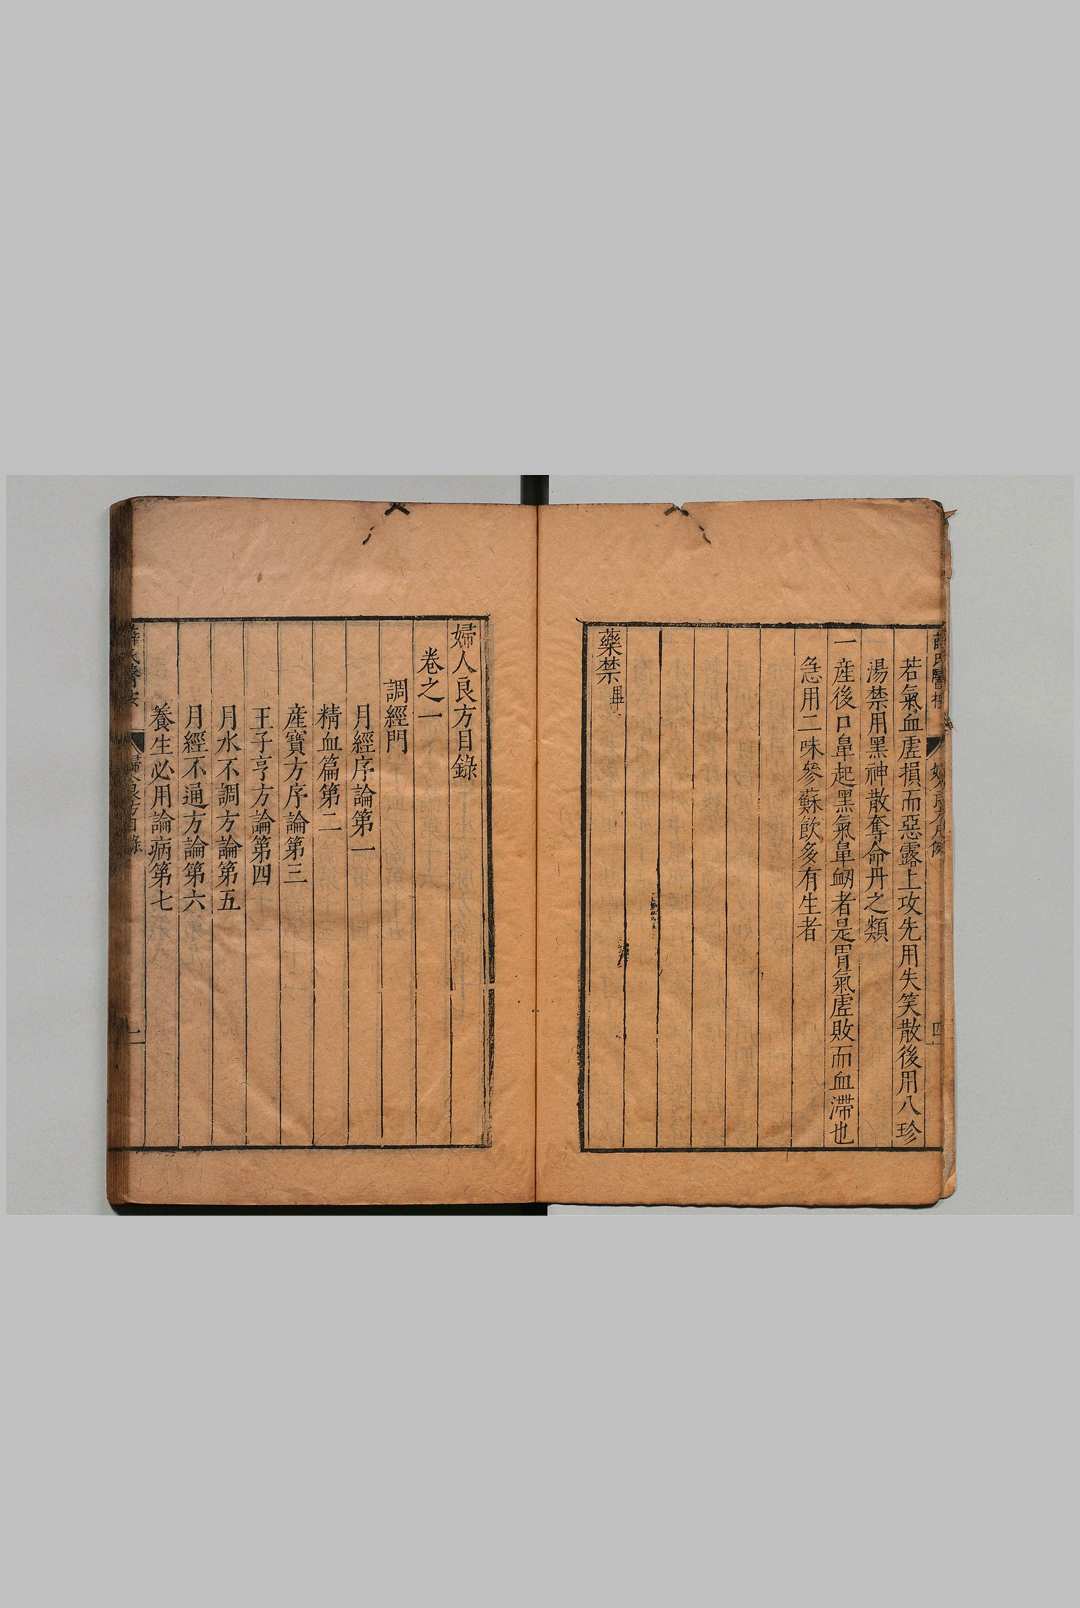 若氣血虛損而惡露上攻先用失笑散後用八珍
湯禁用黑神散奪命丹之類
一產後口鼻起黑氣鼻衂者是胃氣虛敗而血滯也
急用二味參蘇飲多有生者
藥禁
婦人良方目錄
卷之一
調經門
月經序論第一
精血篇第二
產寶方序論第三
王子亨方論第四
月水不調方論第五
月經不通方論第六
養生必用論病第七